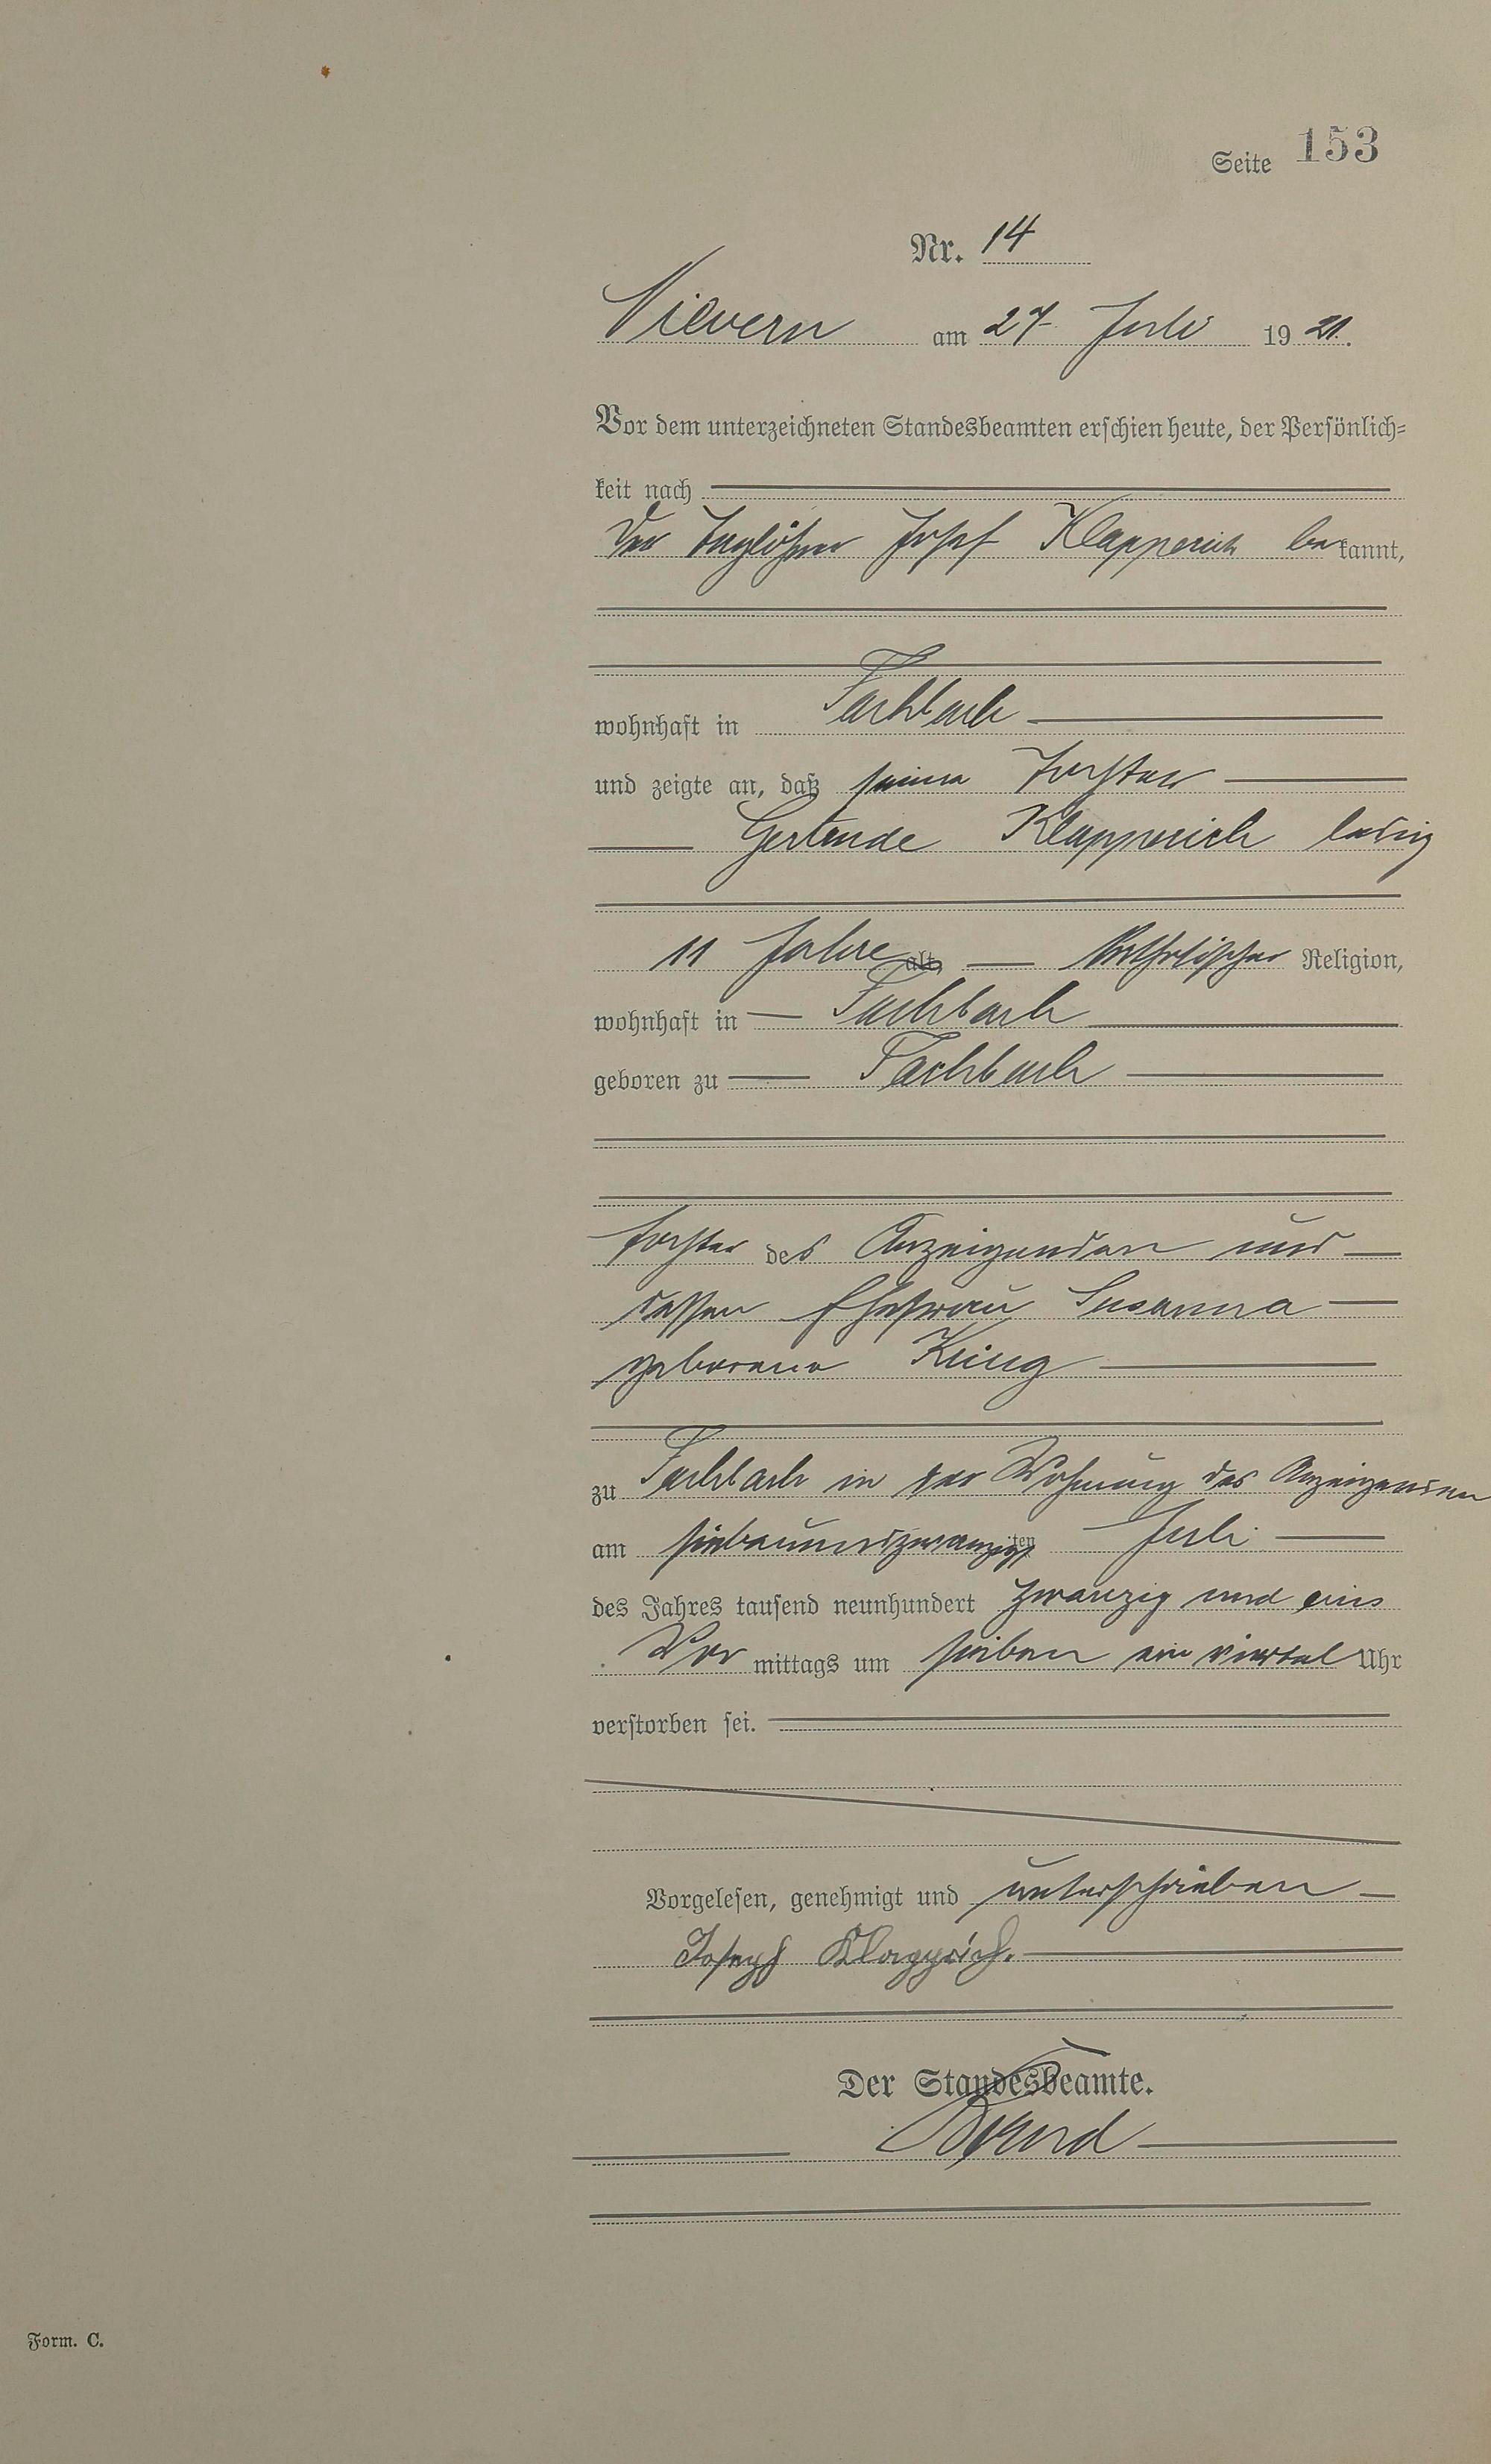 Seite 153
Nr. 14
Nievern am 27. Juli 1921.
Vor dem unterzeichneten Standesbeamten erschien heute, der Persönlich-
keit nach
der Taglöhner Josef Klapperich bekannt,
wohnhaft in Fachbach
und zeigte an, daß seine Tochter
Gertrude Klapperich ledig
11 Jahre alt, katholischer Religion,
wohnhaft in Fachbach
geboren zu Fachbach
Tochter des Anzeigenden und
dessen Ehefrau Susanna
geborene
zu Fachbach in der Wohnung des Anzeigenden
am siebenundzwanzigsten Juli
des Jahres tausend neunhundert zwanzig und eins
Vor mittags um sieben ein viertel Uhr
verstorben sei.
Vorgelesen, genehmigt und unterschrieben
Joseph Klapprich.
Der Standesbeamte.
Form. C.